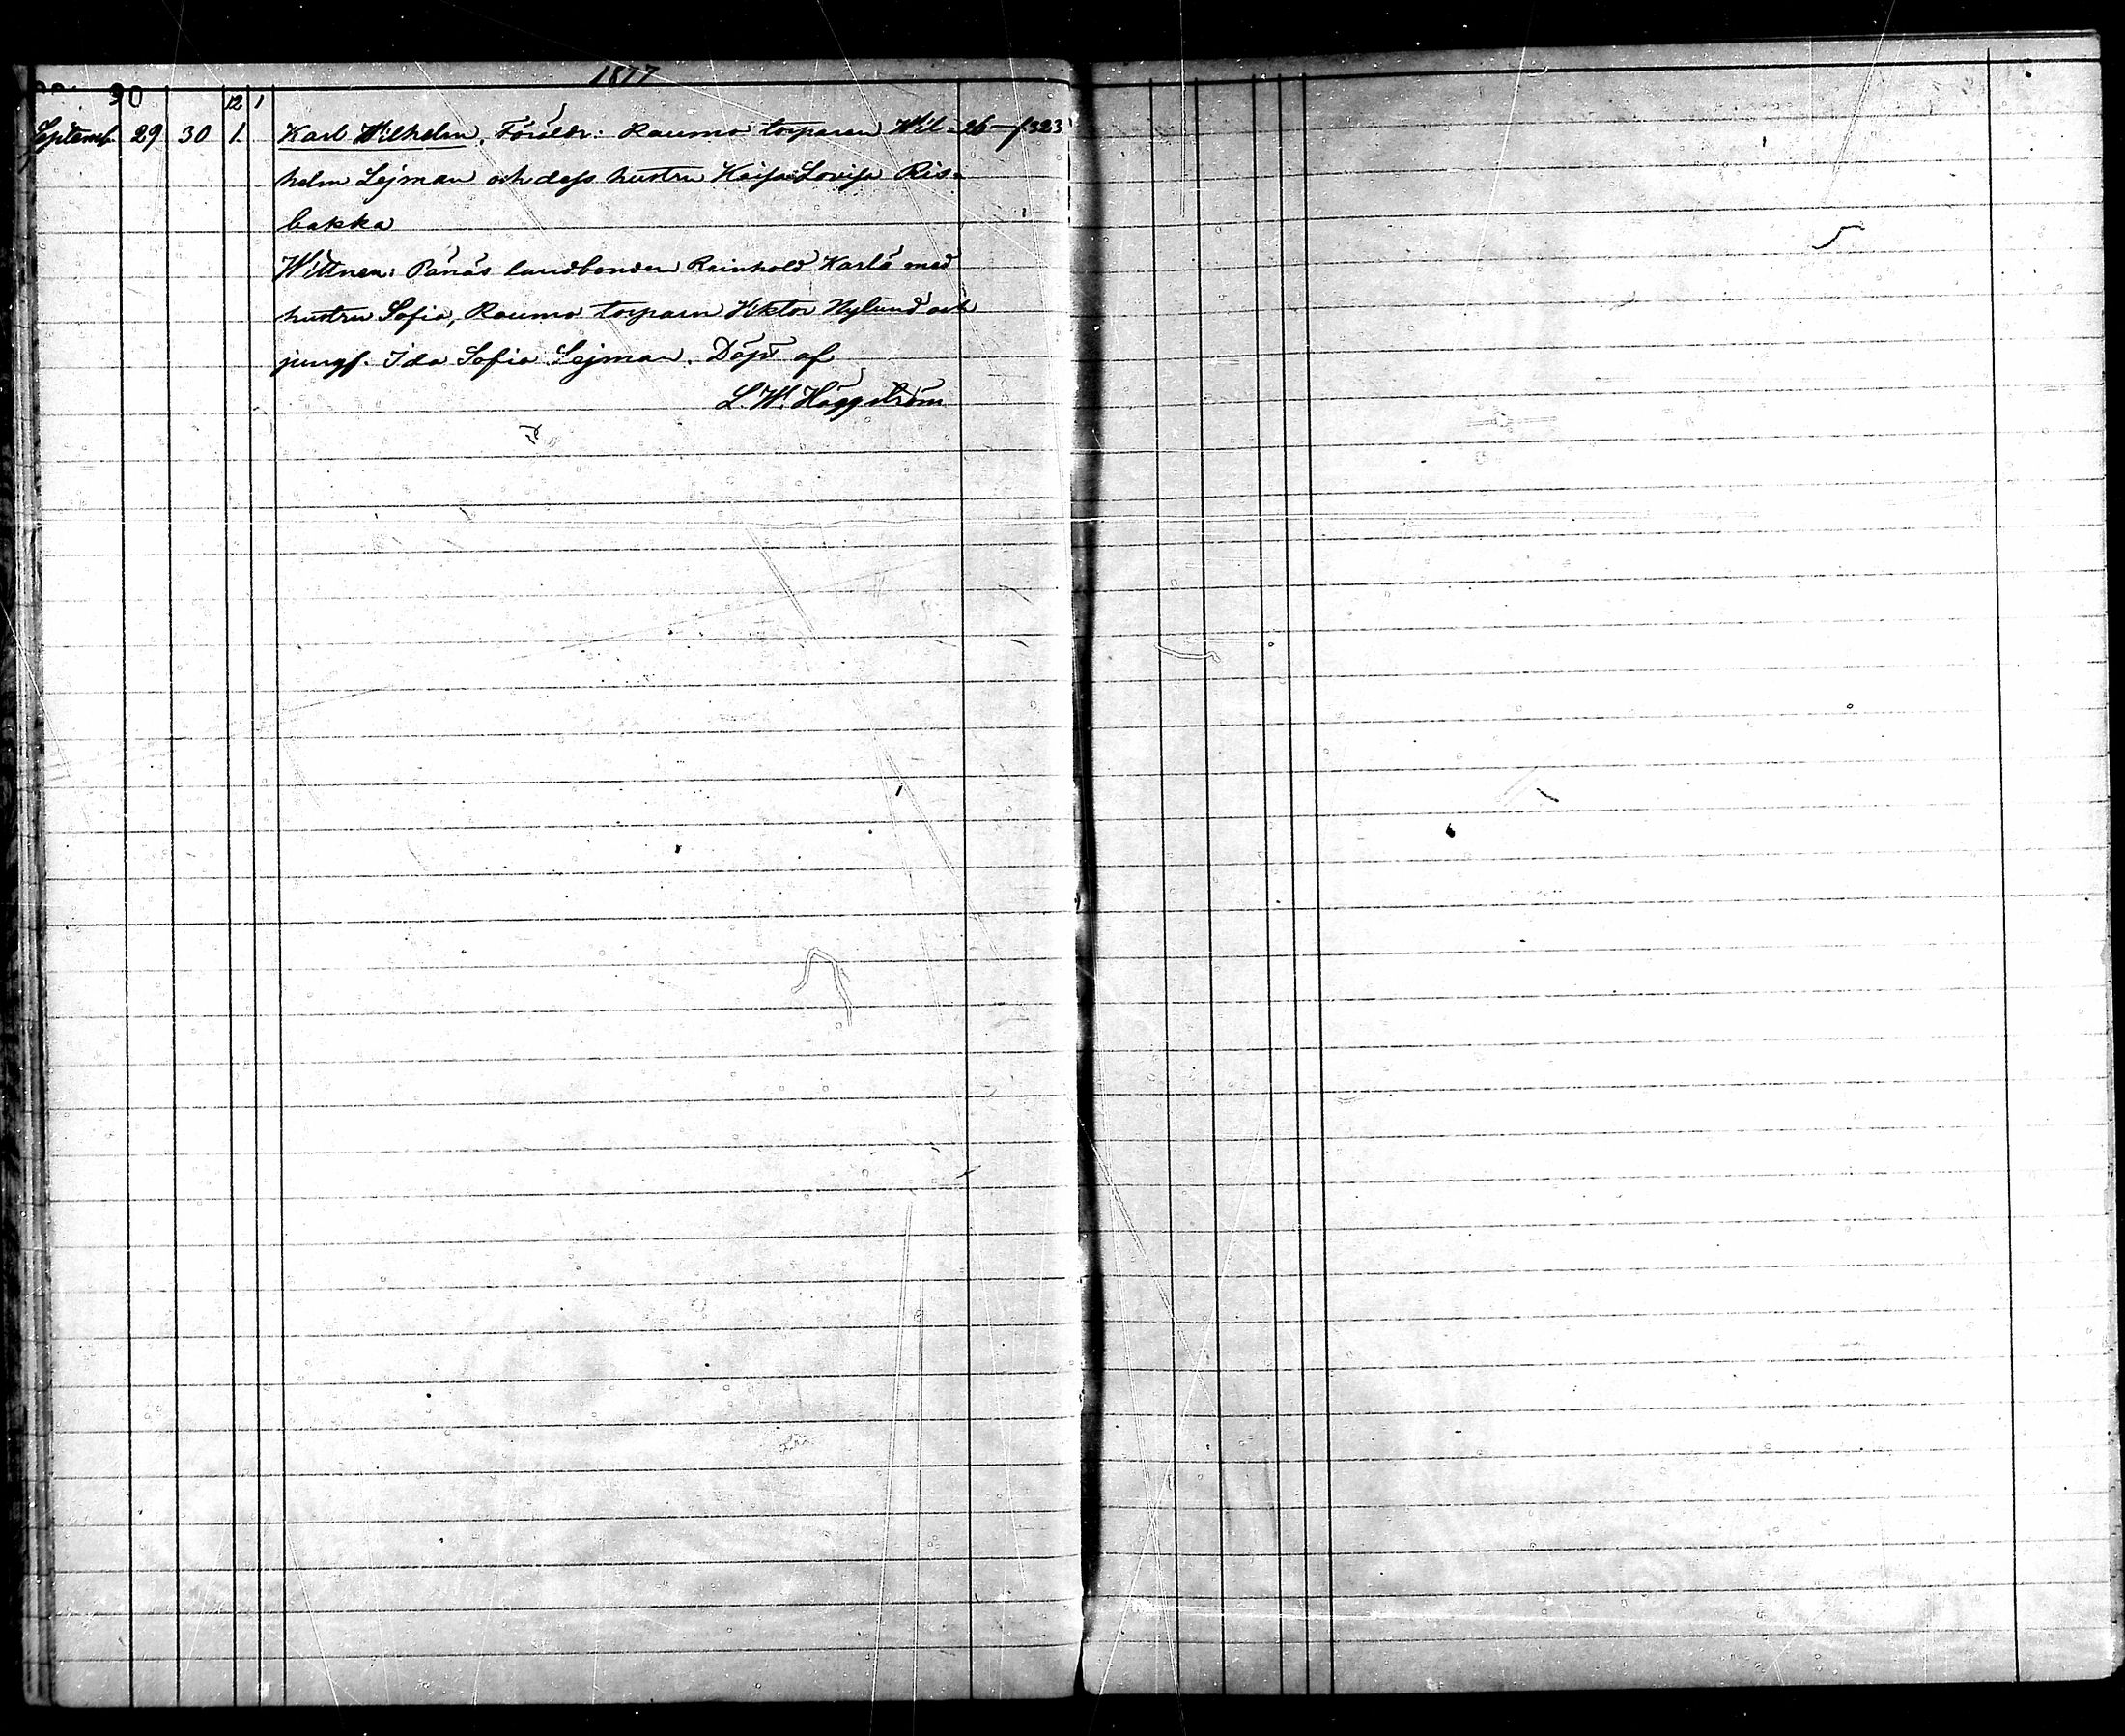 1877
30 12 1
Septemb. 29 30 1. Karl Wilhelm. Föräldr: Raumo torparen Wil- 26 — f 323
helm Lejman och dess hustru Kaisa Lovisa Ris-
bakka
Wittnen: Pånäs landbonden Reinhold Karlö med
hustru Sofia, Raumo torparn Viktor Nylund och
jungf. Ida Sofia Lejman. Döpt af
L. W. Häggström